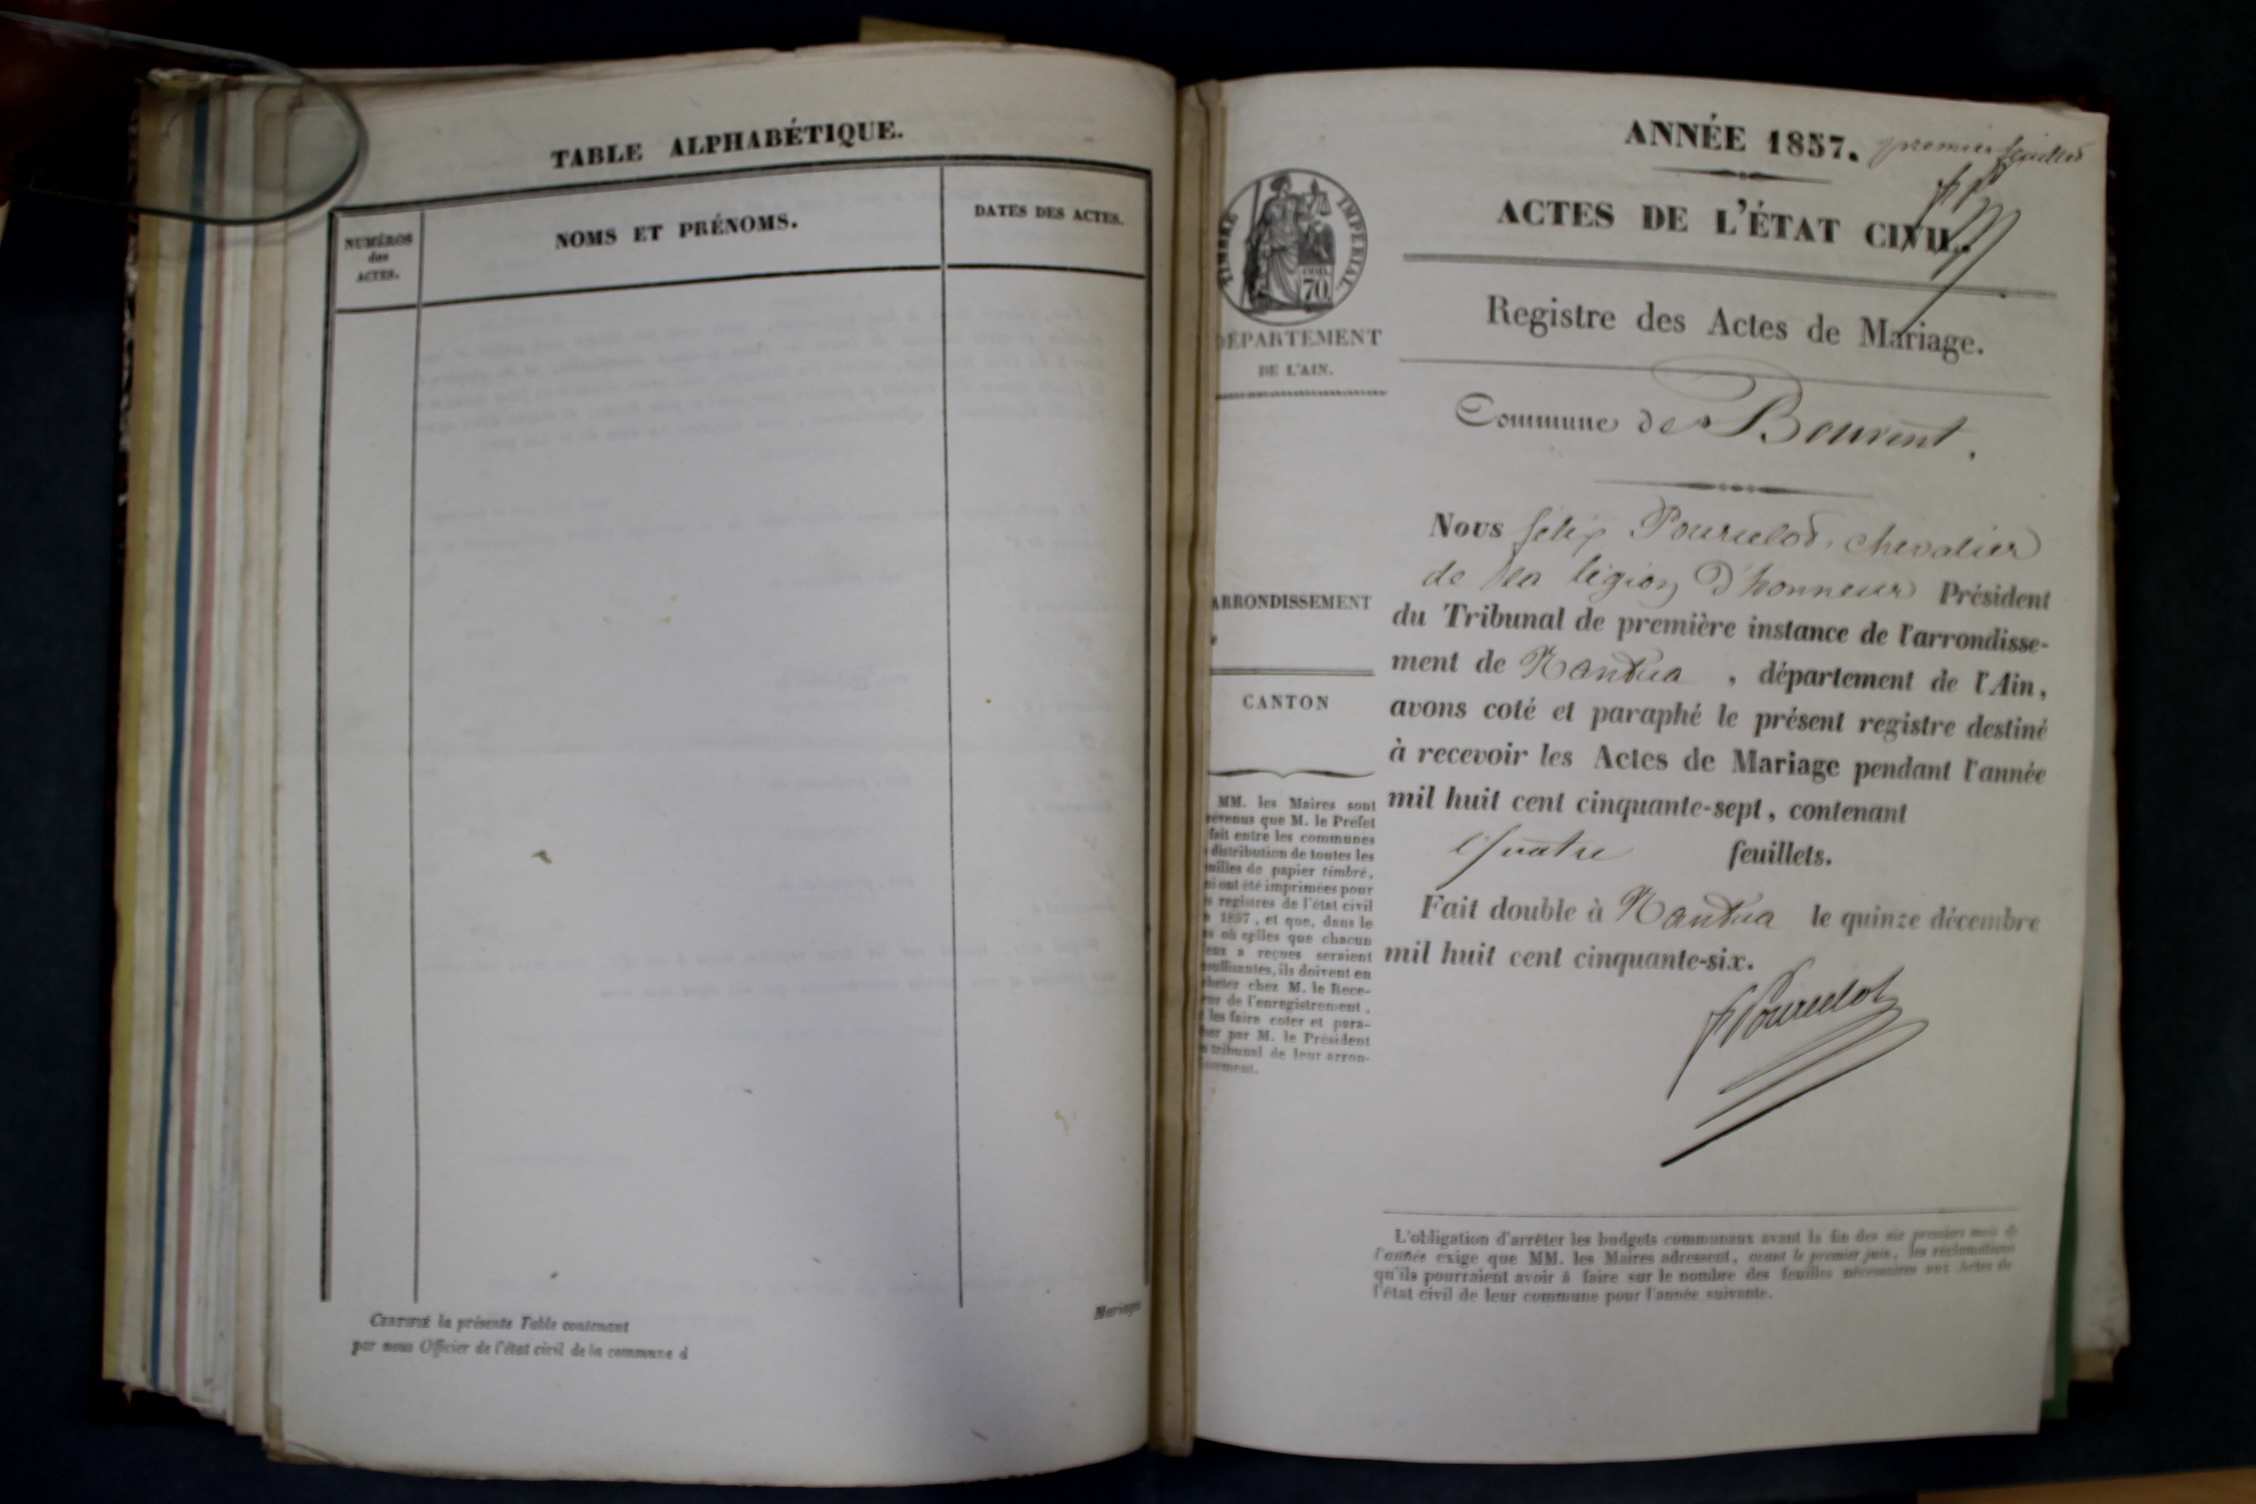 TABLE ALPHABÉTIQUE.
NUMÉROS
des
ACTES.
NOMS ET PRÉNOMS.
DATES DES ACTES.
CERTIFIÉ la présente Table contenant
par nous Officier de l'état civil de la commune d
Mariages
ANNÉE 1857. premier feuillet
ACTES DE L'ÉTAT CIVIL.
TIMBRE IMPÉRIAL
70
DÉPARTEMENT
DE L'AIN.
Registre des Actes de Mariage.
Commune de Bouvent.
Nous félix Pourcelot, chevalier
de la légion d'honneur Président
ARRONDISSEMENT
du Tribunal de première instance de l'arrondisse-
ment de Nantua, département de l'Ain,
CANTON
avons coté et paraphé le présent registre destiné
à recevoir les Actes de Mariage pendant l'année
mil huit cent cinquante-sept, contenant
quatre feuillets.
Fait double à Nantua le quinze décembre
mil huit cent cinquante-six.
F Pourcelot
MM. les Maires sont
prévenus que M. le Préfet
fait entre les communes
distribution de toutes les
feuilles de papier timbré,
qui ont été imprimées pour
registres de l'état civil
1857, et que, dans le
cas où celles que chacun
d'eux a reçues seraient
insuffisantes, ils doivent en
acheter chez M. le Rece-
veur de l'enregistrement,
les faire coter et para-
pher par M. le Président
tribunal de leur arron-
dissement.
L'obligation d'arrêter les budgets communaux avant la fin des six premiers mois de
l'année exige que MM. les Maires adressent, avant le premier juin, les réclamations
qu'ils pourraient avoir à faire sur le nombre des feuilles nécessaires aux Actes de
l'état civil de leur commune pour l'année suivante.